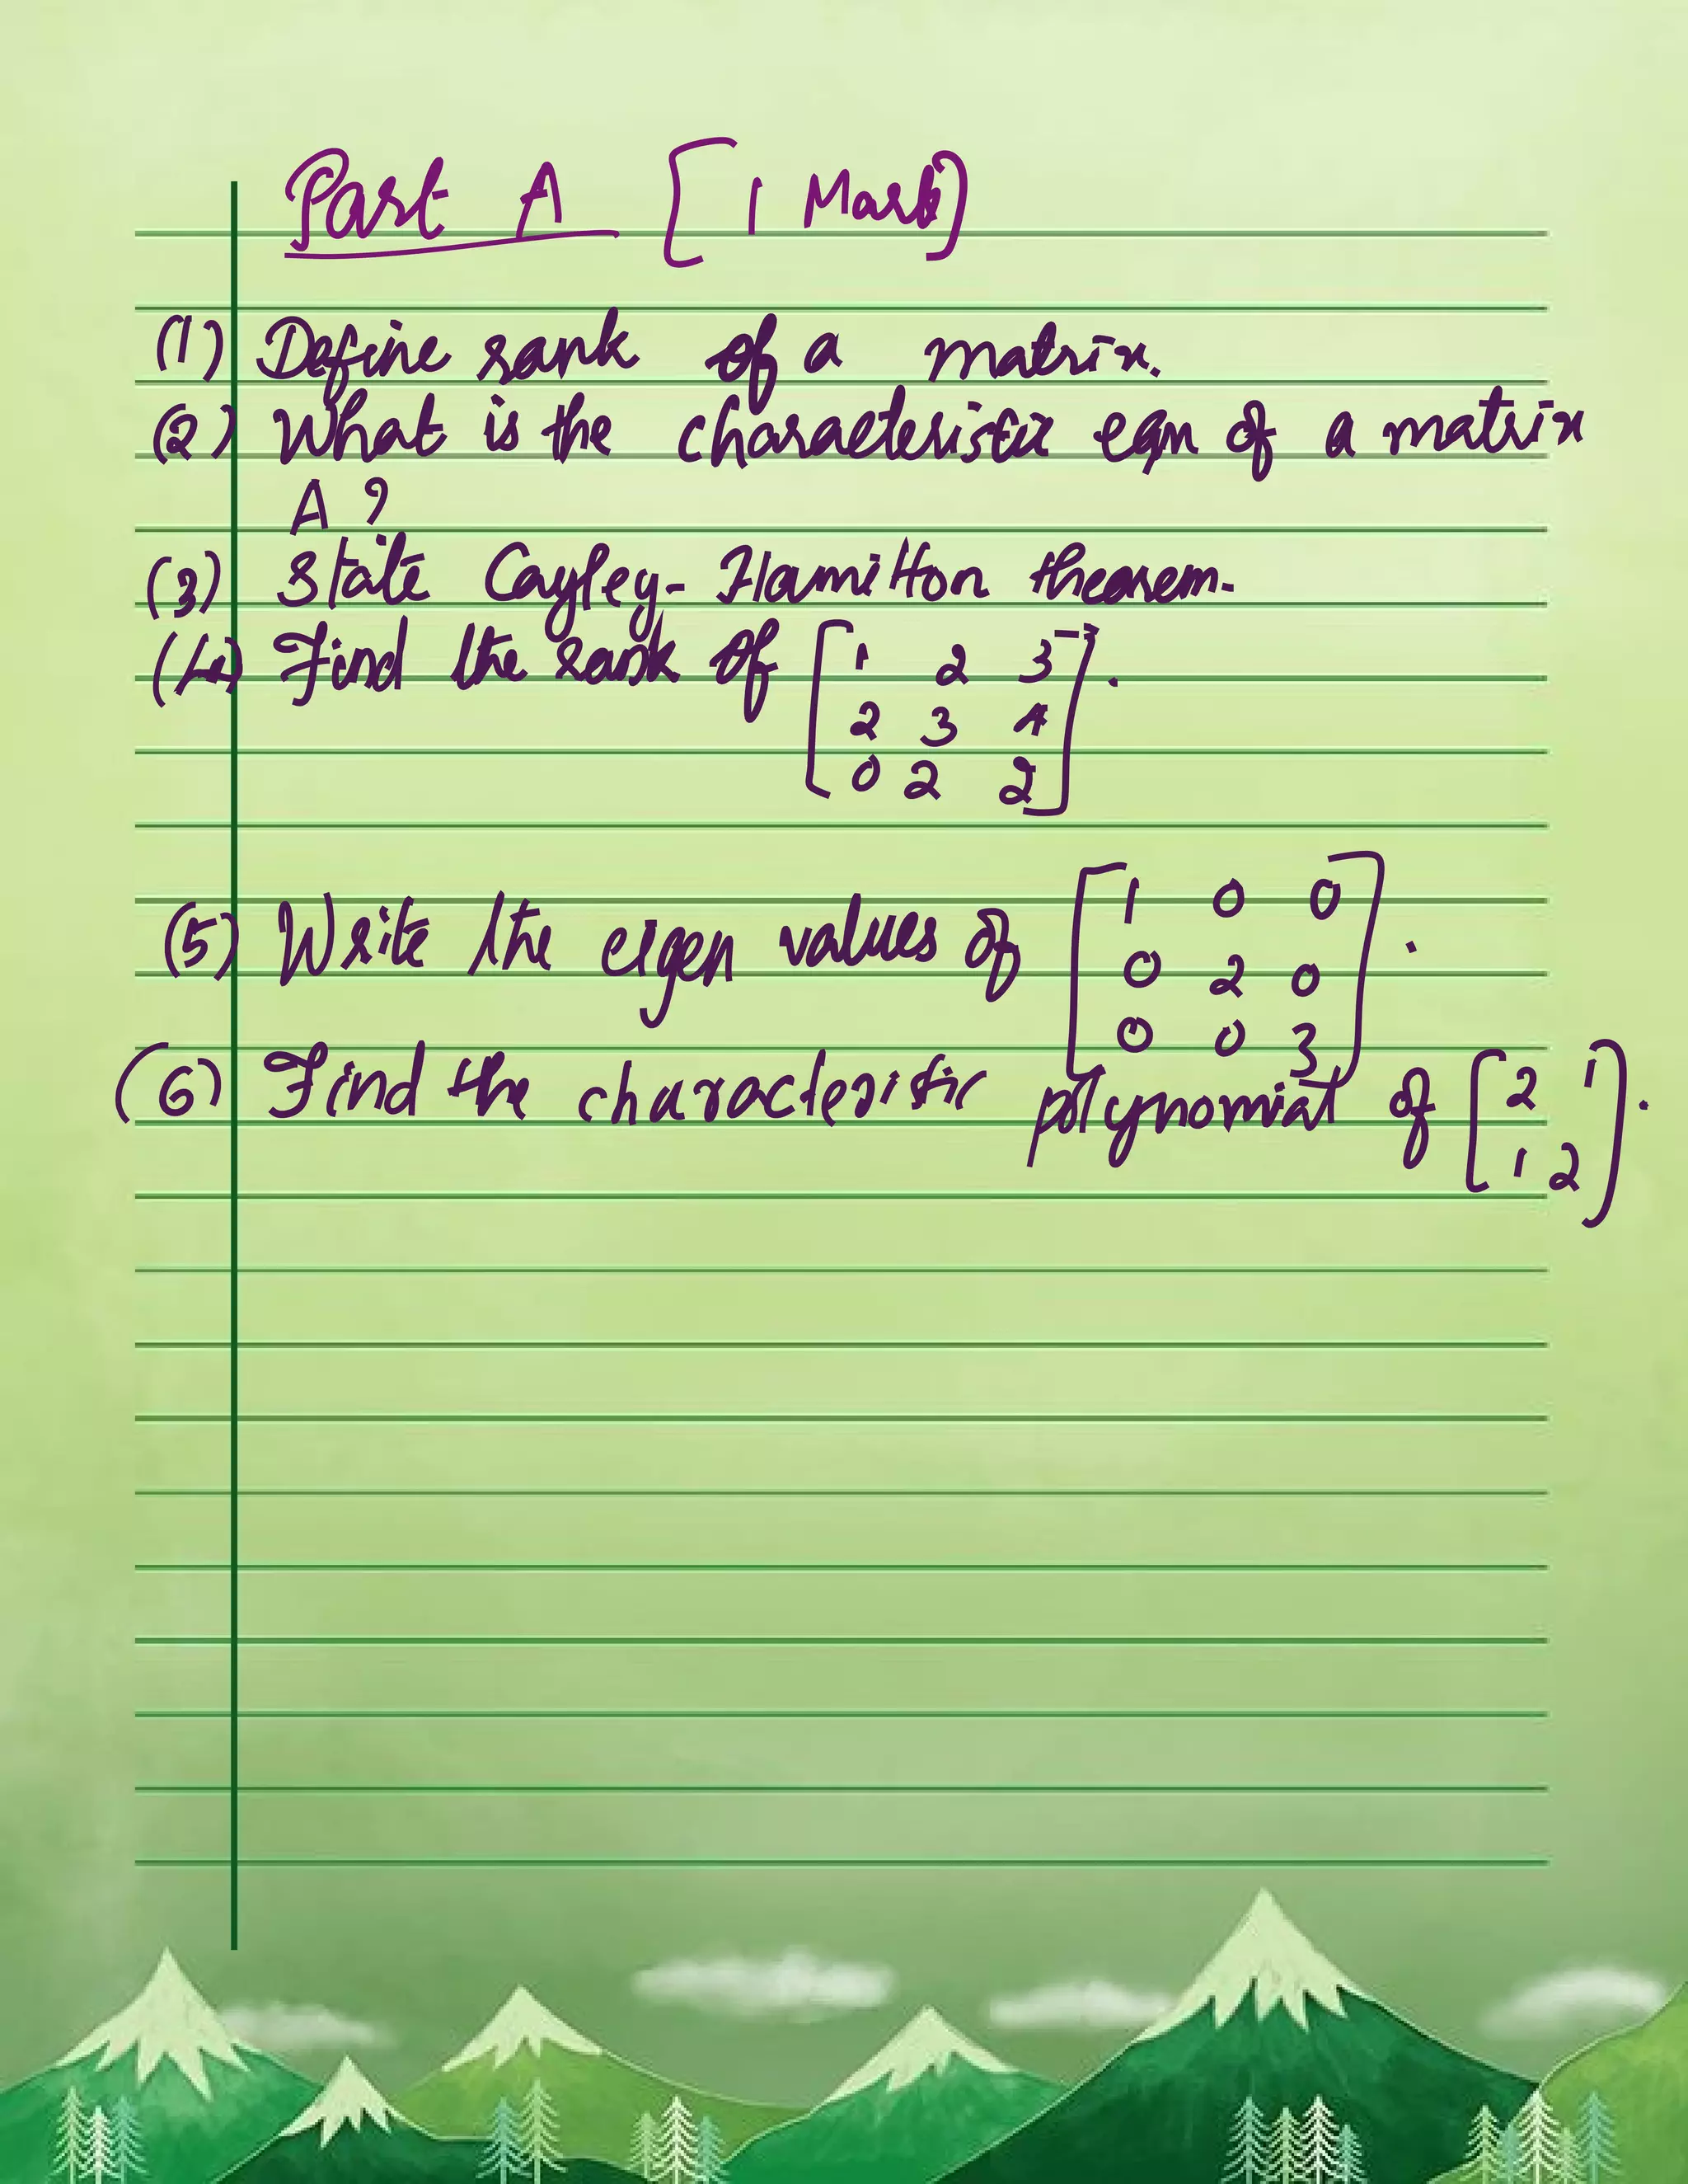 Part A [1 Mark]
(1) Define rank of a matrix.
(2) What is the characteristic eqn of a matrix
A ?
(3) State Cayley-Hamilton theorem.
(4) Find the rank of [1 2 3].
2 3 4
0 2 2
(5) Write the eigen values of [1 0 0].
0 2 0
0 0 3
(6) Find the characteristic polynomial of [2 1].
1 2